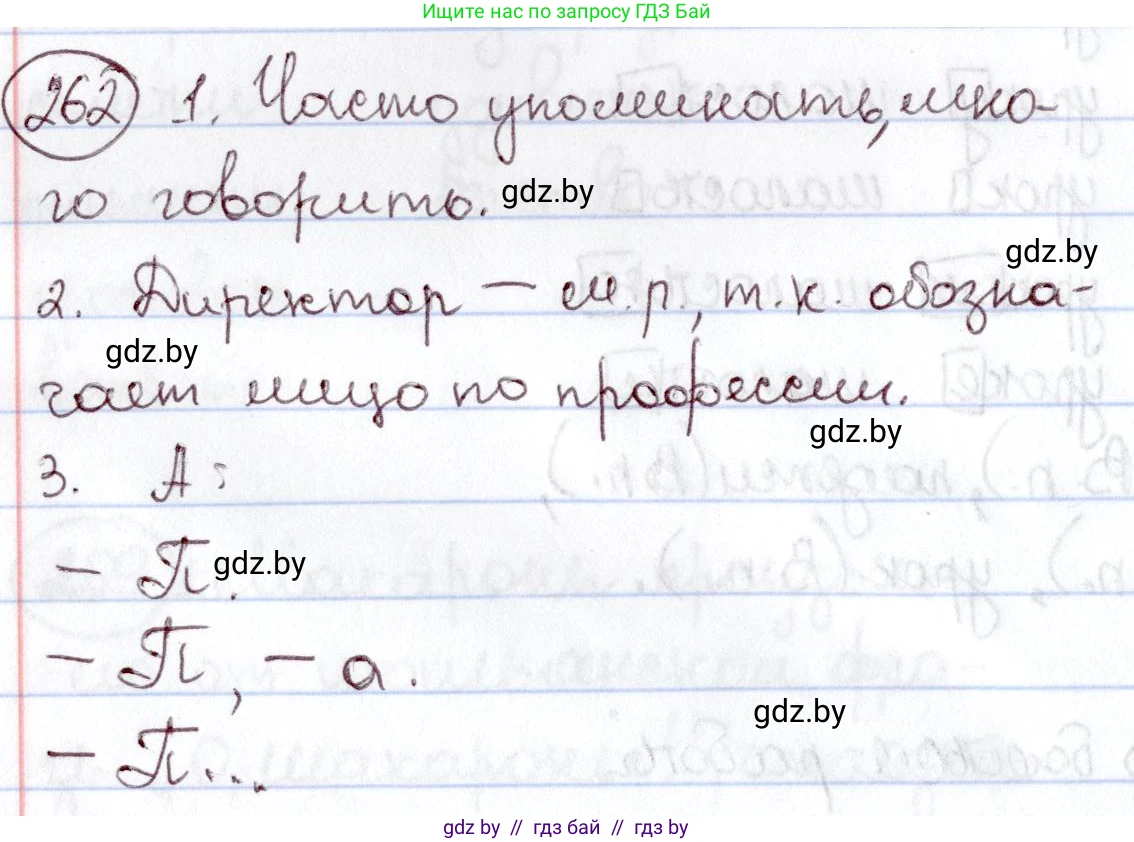 Ищите нас по запросу ГДЗ Бай
262 1. Часто упоминать, мно-
го говорить. gdz.by
gdz.by
2. Директор — м.р., т.к. обозна-
gdz.by
чает лицо по профессии.
gdz.by
3. А:
— П. gdz.by
— П, — а.
gdz.by
— П...
gdz.by // гдз бай // гдз.by